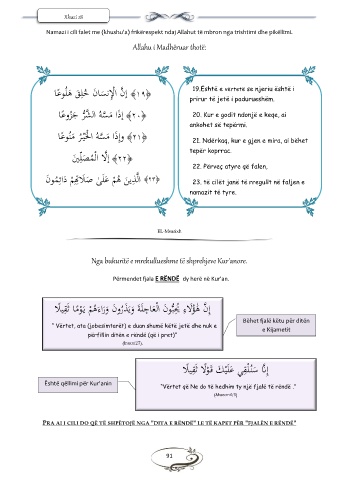 Xhuzi 28
Namazi i cili falet me (khushu'a) frikërespekt ndaj Allahut të mbron nga trishtimi dhe pikëllimi.
Allahu i Madhëruar thotë:
﴿١٩﴾ إِنَّ الْإِنسَانَ خُلِقَ هَلُوعًا
﴿٢٠﴾ إِذَا مَسَّهُ الشَّرُّ جَزُوعًا
﴿٢١﴾ وَإِذَا مَسَّهُ الْخَيْرُ مَنُوعًا
﴿٢٢﴾ إِلَّا الْمُصَلِّينَ
﴿٢٣﴾ الَّذِينَ هُمْ عَلَىٰ صَلَاتِهِمْ دَائِمُونَ
19.Është e vërtetë se njeriu është i
prirur të jetë i padurueshëm.
20. Kur e godit ndonjë e keqe, ai
ankohet së tepërmi.
21. Ndërkaq, kur e gjen e mira, ai bëhet
tepër koprrac.
22. Përveç atyre që falen,
23. të cilët janë të rregullt në faljen e
namazit të tyre.
EL-Mearixh
Nga bukuritë e mrekullueshme të shprehjeve Kur'anore.
Përmendet fjala E RËNDË dy herë në Kur'an.
إِنَّ هَٰؤُلَاءِ يُحِبُّونَ الْعَاجِلَةَ وَيَذَرُونَ وَرَاءَهُمْ يَوْمًا ثَقِيلًا
" Vërtet, ata (jobesimtarët) e duan shumë këtë jetë dhe nuk e
përfillin ditën e rëndë (që i pret)"
(Insan:27).
Bëhet fjalë këtu për ditën
e Kijametit
إِنَّا سَنُلْقِي عَلَيْكَ قَوْلًا ثَقِيلًا
"Vërtet që Ne do të hedhim ty një fjalë të rëndë ."
Është qëllimi për Kur'anin
PRA AI I CILI DO QË TË SHPËTOJË NGA "DITA E RËNDË" LE TË KAPET PËR "FJALËN E RËNDË"
91